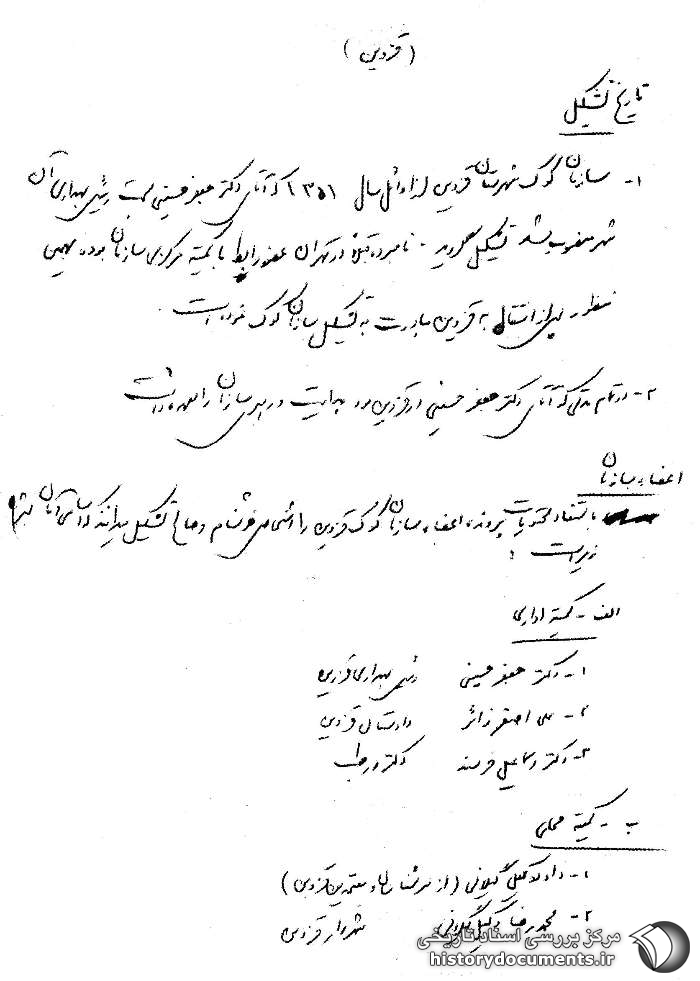 (قزوین)
تاریخ تشکیل
۱- سازمان کوک شهرستان قزوین از اوائل سال ۱۳۵۱ که آقای دکتر جعفر حسینی بسمت رئیس بهداری آن
شهر منصوب شد تشکیل گردید - نامبرده قبلا در تهران عضو رابط با کمیته مرکزی سازمان بوده بهمین
منظور پس از انتقال به قزوین مبادرت به تشکیل سازمان کوک نموده است.
۲- در تمام مدتی که آقای دکتر جعفر حسینی در قزوین بود هدایت و رهبری سازمان را بعهده داشت
اعضاء سازمان
باستناد محتویات پرونده اعضاء سازمان کوک قزوین را اشخاص تشکیل میدادند که اسامی آنان بشرح
زیر است :
الف - کمیته اداری
۱- دکتر جعفر حسینی رئیس بهداری قزوین
۲- علی اصغر زائر دادستان قزوین
۳- دکتر اسماعیل دکتر در طب
ب - کمیته محلی
۱- داود وکیل گیلانی (از سرشناسان و معتمدین قزوین)
۲- محمد رضا وکیل گیلانی شهردار قزوین
مرکز بررسی اسناد تاریخی
historydocuments.ir